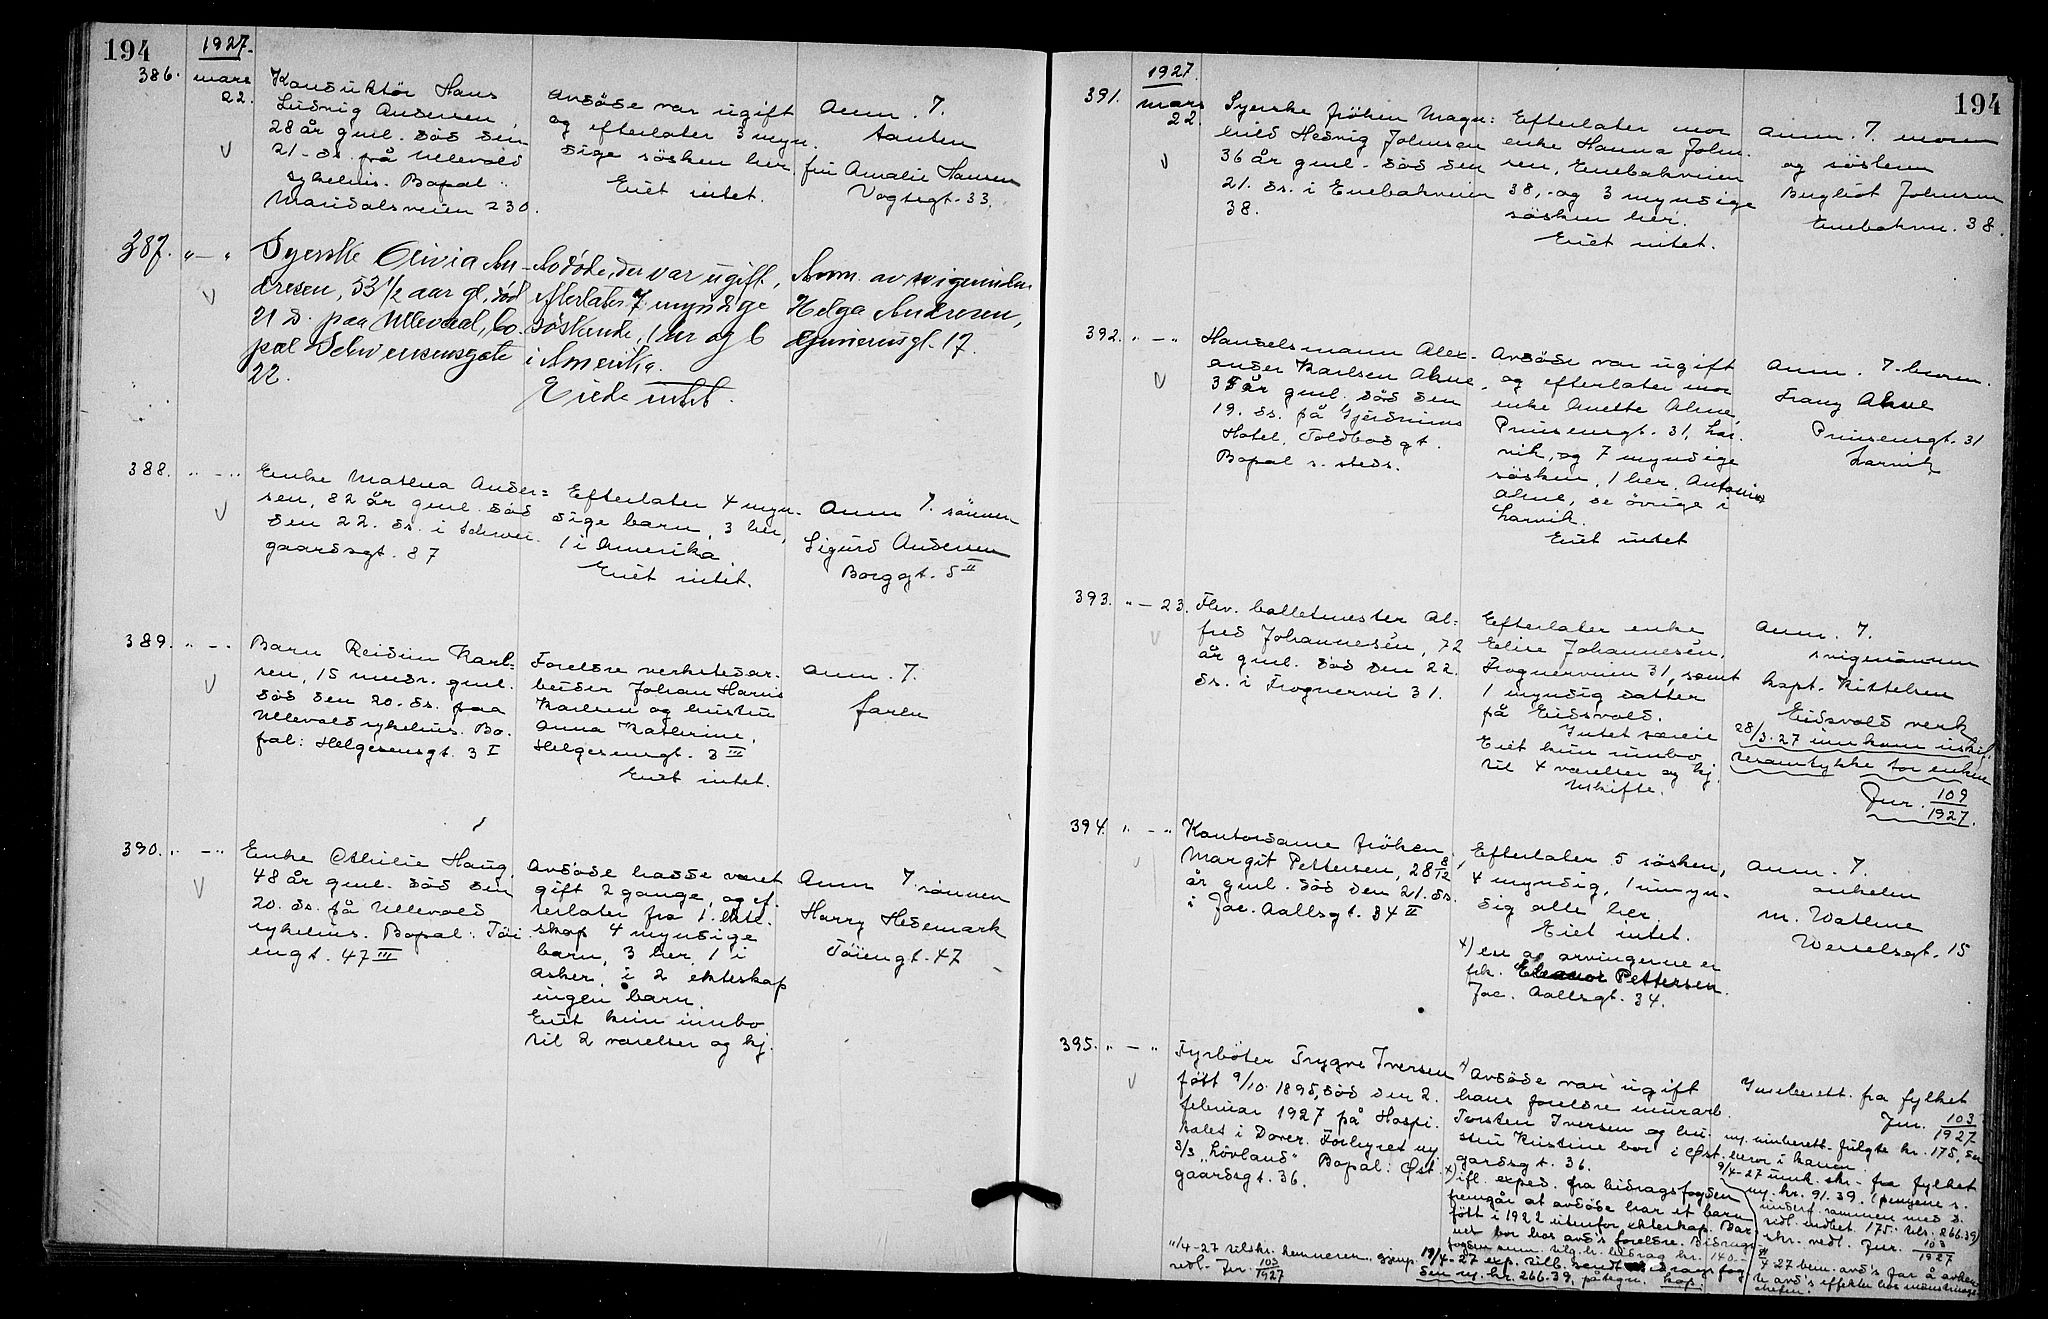 194
1927.
386.
mars
22.
Konduktör Hans
Ludvig Andersen,
28 år gml. död den
21. ds. på Ullevold
sykehus. Bopæl:
Maridalsveien 230.
Avdöde var ugift
og efterlater 3 myn.
dige sösken her.
Eiet intet.
Anm. 7.
tanten
fru Amalie Hansen
Vogtsgt. 33.
387. " — "
Syerske Olivia An-
dresen, 53 1/2 aar gl., död
21 d. paa Ullevaal, bo.
pæl Schwensensgate
22.
Avdöde, der var ugift,
efterlater 7 myndige
söskende, 1 her og 6
i Amerika.
Eiede intet.
Anm. av svigerinden
Helga Andresen,
gt. 17.
388. " — "
Enke Mathea Ander=
sen, 82 år gml. död
den 22. ds. i Schwei.
gaardsgt. 87
Efterlater 4 myn.
dige barn, 3 her,
1 i Amerika
Eiet intet.
Anm 7. sönnen
Sigurd Andersen
Borggt. 5 II
389. " — "
Barn Reidun Karl=
sen, 15 mndr. gml.
död den 20. ds. paa
Ullevold sykehus. Bo.
pæl: Helgesensgt. 3 I
Foreldre verkstedar.
beider Johan Harris
Karlsen og hustru
Anna Katherine,
Helgesensgt. 3 III
Eiet intet.
Anm. 7.
faren
390. " — "
Enke Othilie Haug,
48 år gml. död den
20. ds. på Ullevold
sykehus. Bopæl: Töi
engt. 47 III
Avdöde hadde været
gift 2 gange, og ef.
terlater fra 1. ekte.
skap 4 myndige
barn, 3 her, 1 i
Asker, i 2 ekteskap
ingen barn.
Eiet kun innbo
til 2 værelser og kj.
Anm 7. sönnen
Harry Hedemark
Töiengt. 47
194
1927.
391.
mars
22.
Syerske fröken Magn=
hild Hedvig Johnsen
36 år gml. död den
21. ds. i Enebakveien
38.
Efterlater mor
enke Hanna John.
sen, Enebakveien
38, og 3 myndige
sösken her.
Eiet intet.
Anm. 7. moren
og sösteren
Bergliot Johnsen
Enebakvn. 38.
392. " — "
Handelsmann Alex-
ander Karlsen Ahne,
35 år gml. död den
19. ds. på Gjerdrums
Hotel, Toldbodgt.
Bopæl s. steds.
Avdöde var ugift
og efterlater mor
enke Anette Ahne,
Prinsensgt. 31, Lar.
vik, og 7 myndige
sösken, 1 her, Antonie
Ahne, de övrige i
Larvik.
Eiet intet
Anm. 7. broren.
Franz Ahne
Prinsensgt. 31
Larvik
393. " — 23.
Fhv. balletmester Al=
fred Johannesén, 72
år gml. död den 22.
ds. i Frognervei 31.
Efterlater enke
Elise Johannesén,
Frognerveien 31, samt
1 myndig datter
på Eidsvold.
Intet særeie
Eiet kun innbo
til 4 værelser og kj.
Uskifte.
Anm. 7.
svigersönnen
kapt. Kittelsen
Eidsvold verk
28/3. 27 innkom uskif.
tesamtykke for enken
Jnr. 109/1927.
394. " — "
Kontordame fröken
Margit Pettersen, 28 8/12
år gml. död den 21. ds.
i Jac. Aallsgt. 34 II
Efterlater 5 sösken,
4 myndig, 1 umyn-
dig alle her.
Eiet intet.
x) en av arvingerne er
frk. Eleanor Pettersen.
Jac. Aallsgt. 34.
Anm. 7.
onkelen
M. Wattne
Wesselsgt. 15
395. " — "
Fyrböter Trygve Iversen
födt 9/10. 1895, död den 2.
februar 1927 på Hospi.
talet i Dover. Forhyret
3/3 "Lövland" Bopæl: Øst.
gaardsgt. 36.
x) Avdöde var ugift
hans foreldre murarb.
Torsten Iversen og hu.
stru Kristine bor i Øst.
gardsgt. 36.
x) ifl. exped. fra bidragsfogden
fremgår at avdöde har et barn
födt i 1922 utenfor ekteskap. Bar
net bor hos avd's foreldre. Bidrags-
fogden
Innberett. fra fylket
Jnr. 103/1927
m. innberett. fulgte kr. 175, som
beror i kassen.
9/4-27 innk. skr. fra fylket
m. kr. 91.39. (pengene
sammen med
vedl. indbet. 175. tils. 266.39)
skr. vedl. Jnr. 103/1927
11/4-27 tilskr.
vedl. Jnr. 103/1927
19/4-27 exp.
m. kr. 266.39, påtegn. kopi.
4 27 bem. avd's far å avhen
te avd's effekter hos mönstrings
chefen.